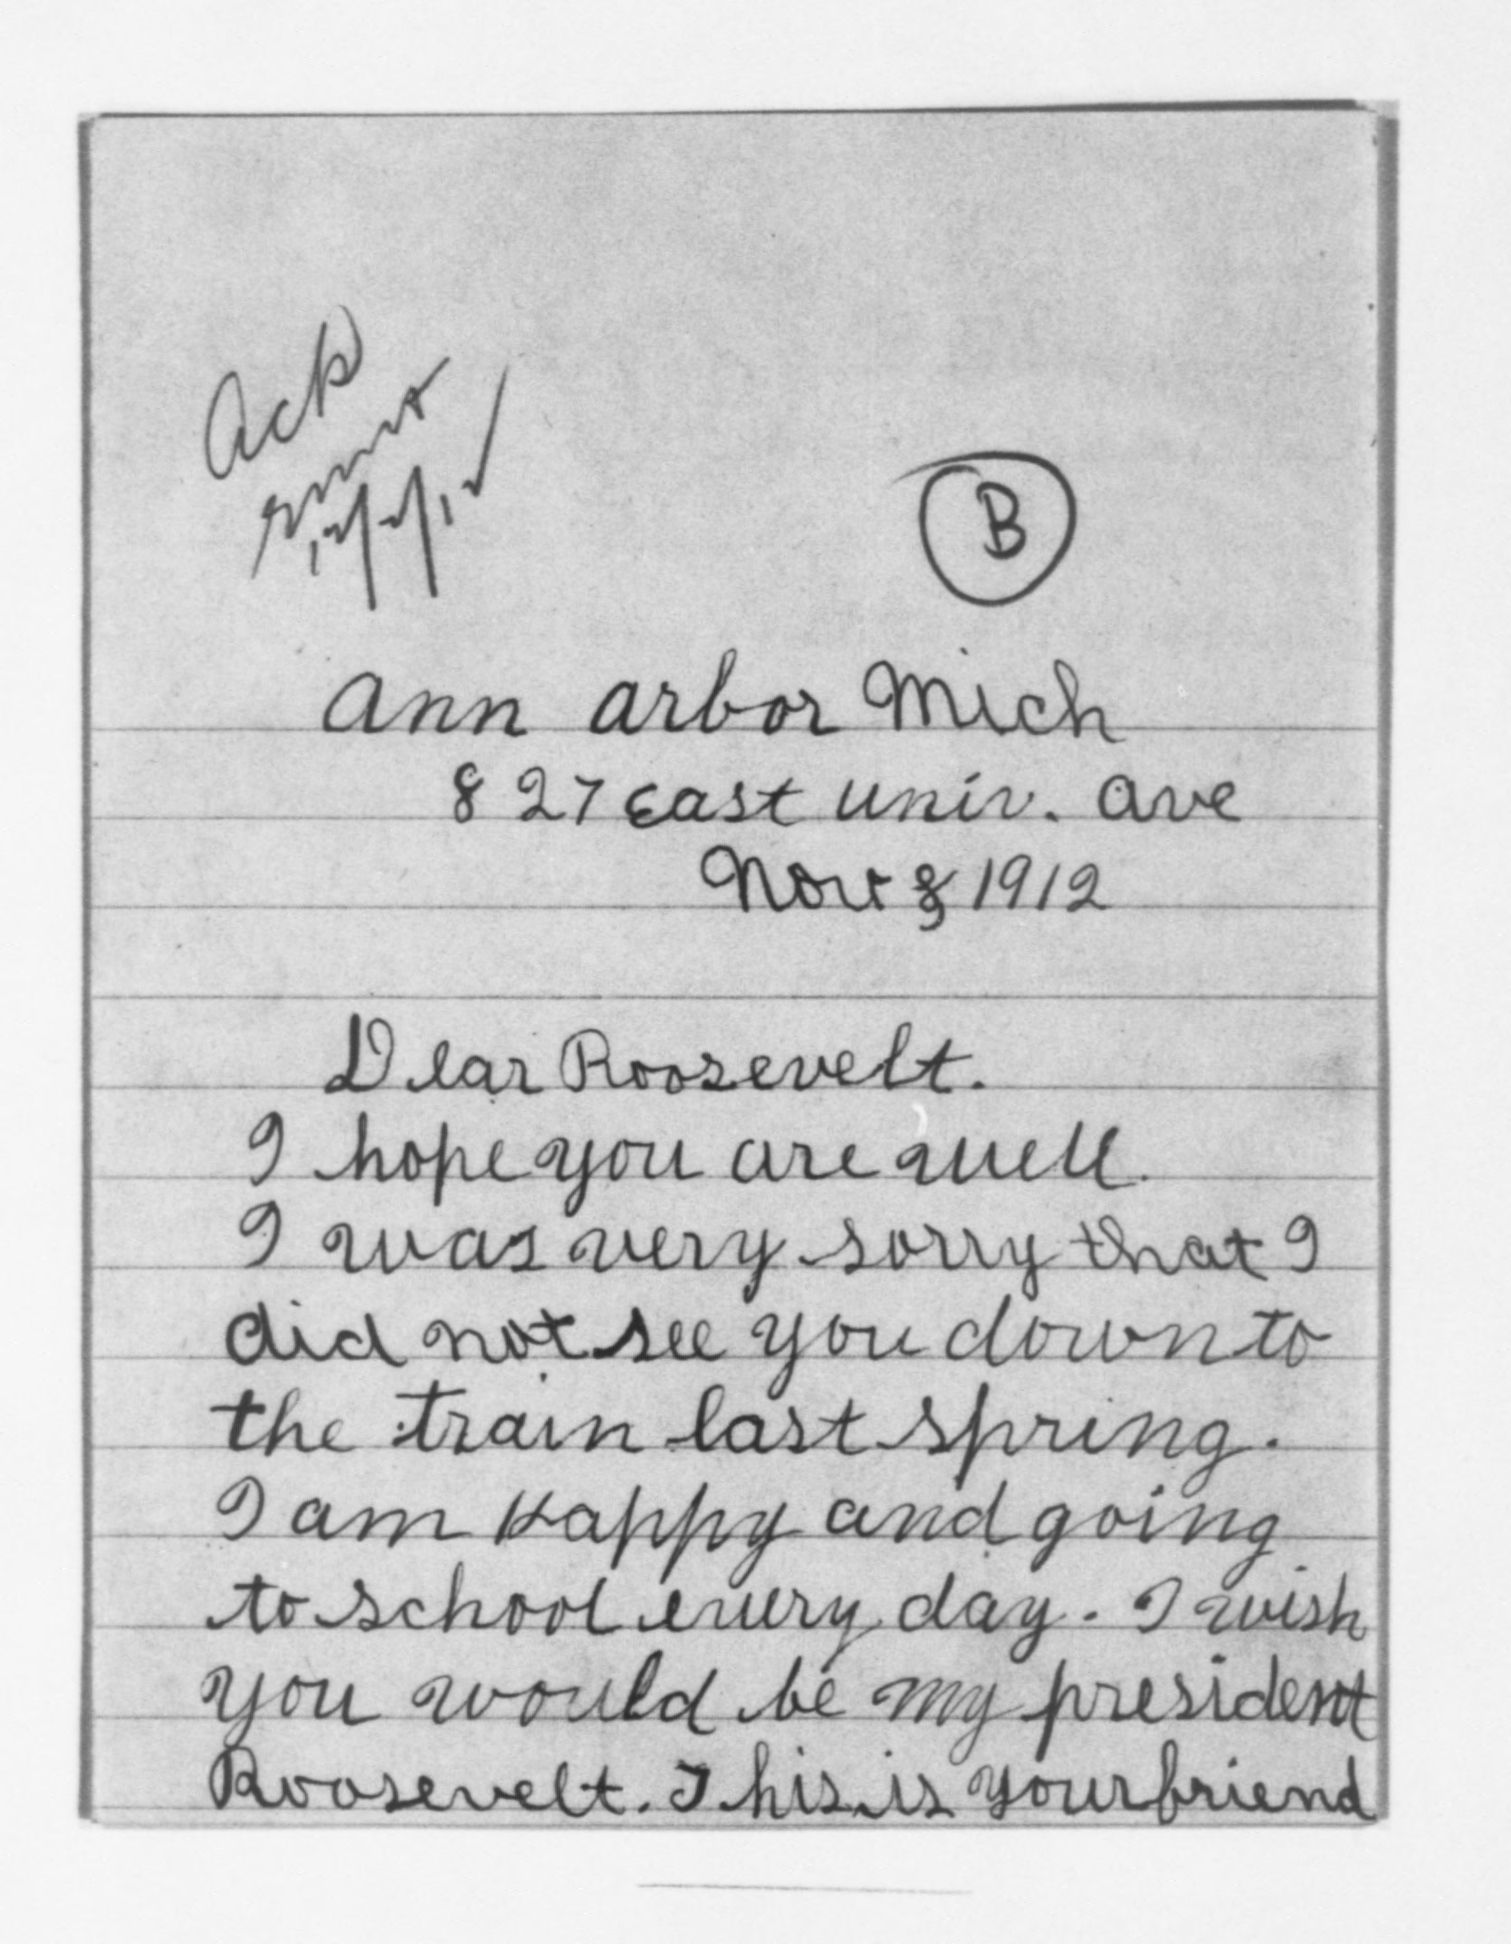 Ack
12/2/12
B
Ann arbor Mich
827 East Univ. ave
Nov 8 1912
Dear Roosevelt.
I hope you are well.
I was very sorry that I
did not see you down to
the train last spring.
I am Happy and going
to school every day. I wish
you would be my president
Roosevelt. This is your friend